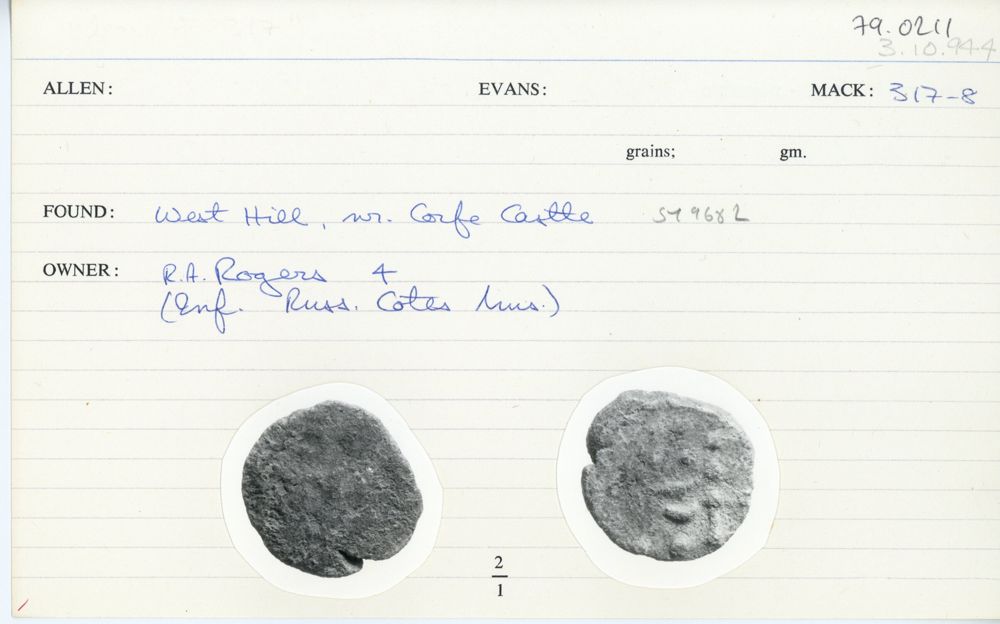 79.0211
3.10.944
ALLEN: EVANS: MACK: 317-8
grains; gm.
FOUND: West Hill, nr. Corfe Castle SY 9682
OWNER: R.A. Rogers 4
(Inf. Russ. Cotes Mus.)
2
1